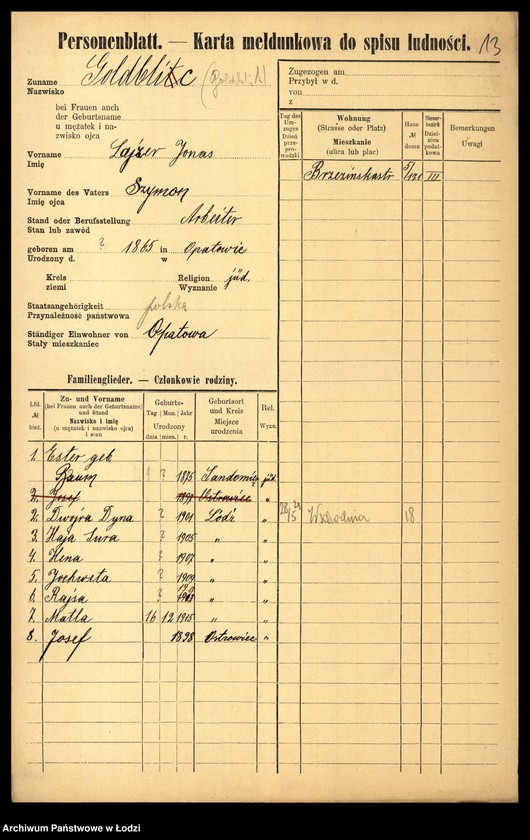 Personenblatt. — Karta meldunkowa do spisu ludności. 13
Zuname Goldblitc (Goldblit)
Nazwisko
bei Frauen auch
der Geburtsname
u mężatek i na-
zwisko ojca
Vorname Lajzer Jonas
Imię
Vorname des Vaters Szymon
Imię ojca
Stand oder Berufsstellung Arbeiter
Stan lub zawód
geboren am ? 1865 in Opatowie
Urodzony d. w
Kreis Religion jüd.
ziemi Wyznanie
Staatsangehörigkeit polska
Przynależność państwowa
Ständiger Einwohner von Opatowa
Stały mieszkaniec
Zugezogen am
Przybył w d.
von
z
Tag des Um-zuges Dzień prze-prowadzki
Wohnung (Strasse oder Platz) Mieszkanie (ulica lub plac)
Haus № domu
Steuer-bezirk Dziel-nica podat-kowa
Bemerkungen Uwagi
Brzezinskastr 5/121 III
28/5 21 Wschodnia 18
Familienglieder. — Członkowie rodziny.
Lfd. № bież.
Zu- und Vorname (bei Frauen auch der Geburtsname) und Stand Nazwisko i imię (u mężatek i nazwisko ojca) i stan
Geburts- Tag Mon. Jahr Urodzony dnia mies. r.
Geburtsort und Kreis Miejsce urodzenia
Rel. Wyzn.
1. Ester geb.
Baum ? 1875 Sandomir jüd.
2. Josef 1897 Ostrowiec "
2. Dwojra Dyna ? 1901 Łódź "
3. Haja Sura ? 1905 " "
4. Hena ? 1907 " "
5. Jochweta ? 1909 " "
6. Rajsa ? 1913 " "
7. Matla 16 12 1915 " "
8. Josef 1898 Ostrowiec "
Archiwum Państwowe w Łodzi